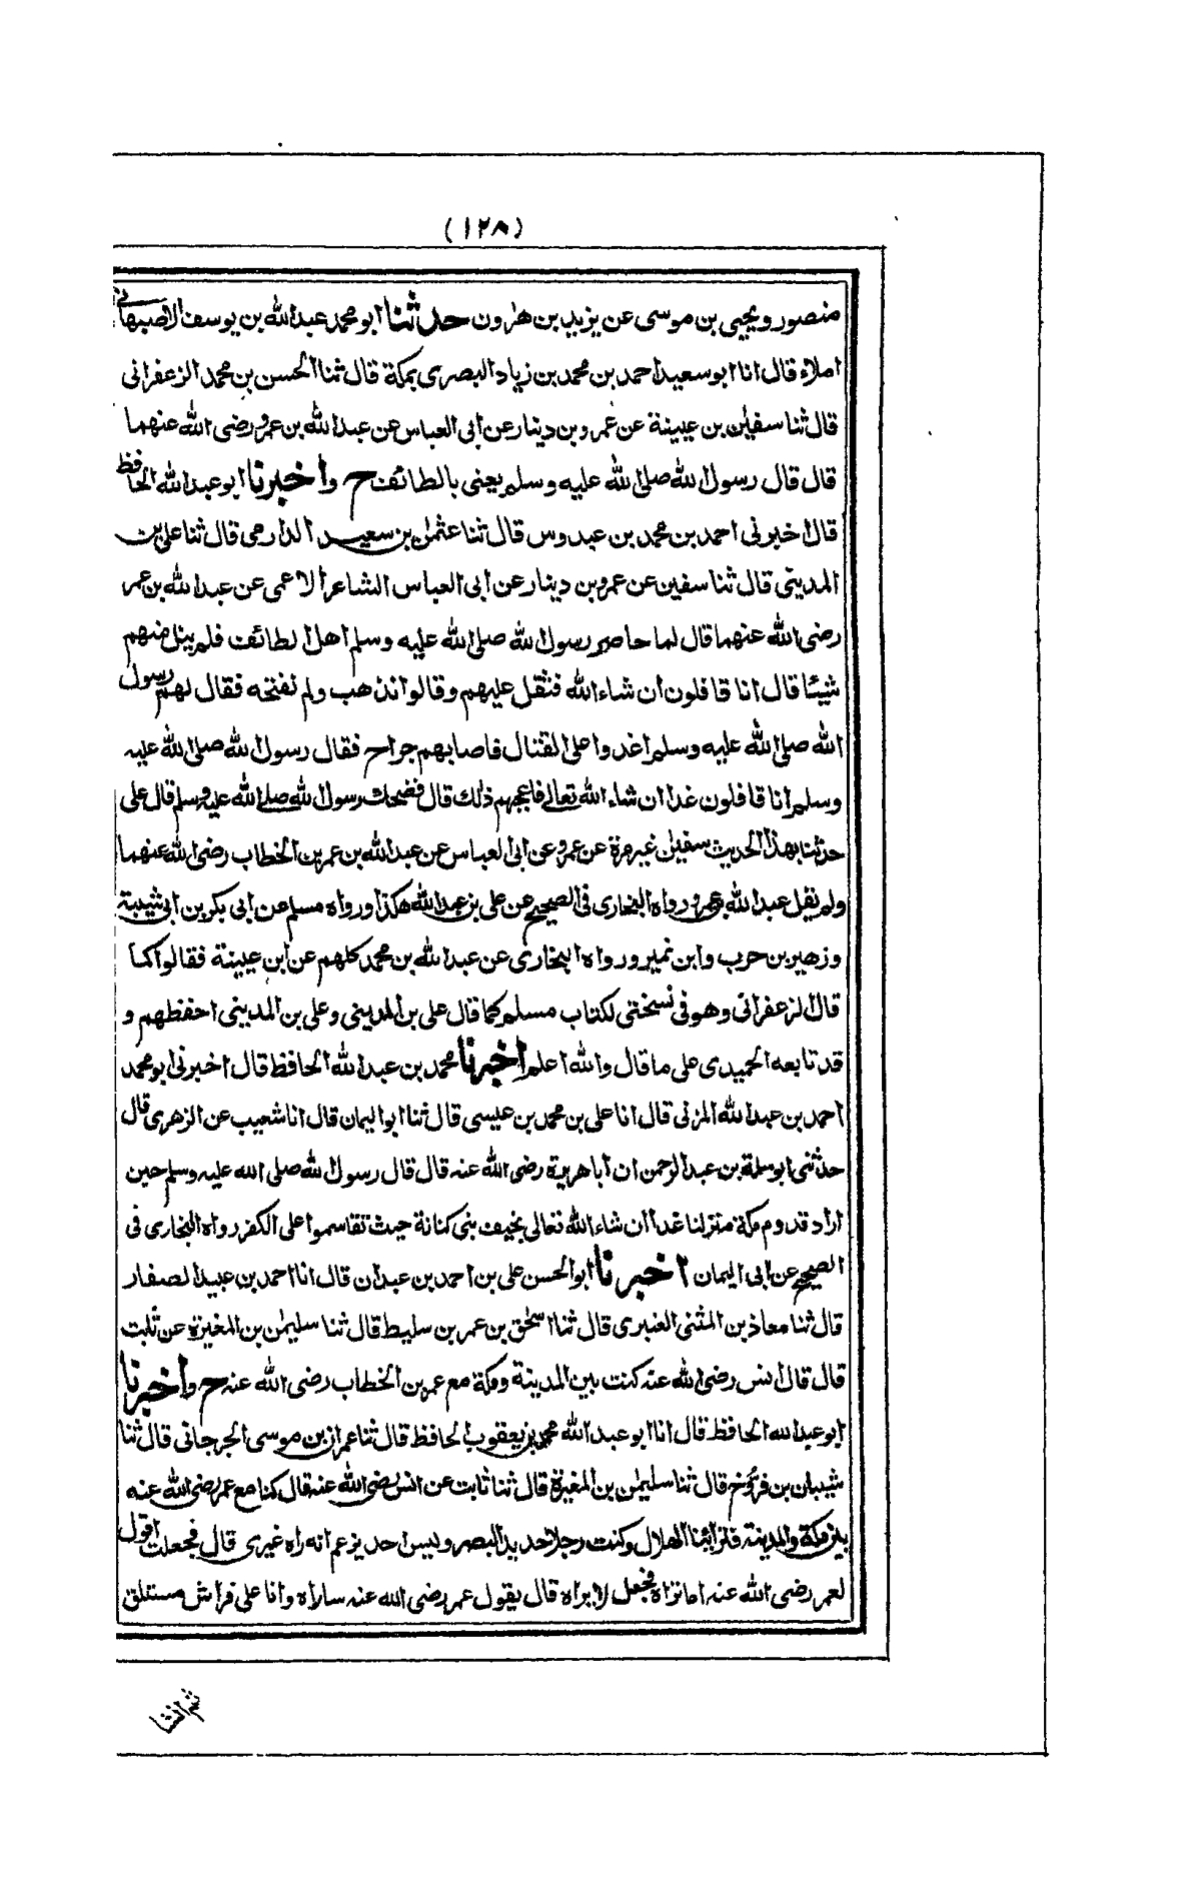 (١٢٨)
منصور ويحيى بن موسى عن يزيد بن هٰرون حدثنا ابو محمد عبد الله بن يوسف الاصبهانى
املاء قال انا ابو سعيد احمد بن محمد بن زياد البصرى بمكة قال ثنا الحسن بن محمد الزعفرانى
قال ثنا سفيٰن بن عيينة عن عمرو بن دينار عن ابى العباس عن عبد الله بن عمرو رضى الله عنهما
قال قال رسول الله صلى الله عليه وسلم يعنى بالطائف ح واخبرنا ابو عبد الله الحافظ
قال اخبرنى احمد بن محمد بن عبدوس قال ثنا عثمٰن بن سعيد الدارمى قال ثنا على بن
المدينى قال ثنا سفين عن عمرو بن دينار عن ابى العباس الشاعر الاعمى عن عبد الله بن عمر
رضى الله عنهما قال لما حاصر رسول الله صلى الله عليه وسلم اهل الطائف فلم ينل منهم
شيئا قال انا قافلون ان شاء الله فثقل عليهم وقالوا نذهب ولم نفتحه فقال لهم رسول
الله صلى الله عليه وسلم اغدوا على القتال فاصابهم جراح فقال رسول الله صلى الله عليه
وسلم انا قافلون غدا ان شاء الله تعالى فاعجبهم ذلك قال فضحك رسول الله صلى الله عليه وسلم قال على
حدثنا بهذا الحديث سفيٰن غير مرة عن عمرو عن ابى العباس عن عبد الله بن عمر بن الخطاب رضى الله عنهما
ولم يقل عبد الله بن عمرو رواه البخارى فى الصحيح عن على بن عبد الله هكذا ورواه مسلم عن ابى بكر بن ابى شيبة
وزهير بن حرب وابن نمير ورواه البخارى عن عبد الله بن محمد كلهم عن ابن عيينة فقالوا كما
قال الزعفرانى وهو فى نسختى لكتاب مسلم كما قال على بن المدينى وعلى بن المدينى احفظهم و
قد تابعه الحميدى على ما قال والله اعلم اخبرنا محمد بن عبد الله الحافظ قال اخبرنى ابو محمد
احمد بن عبد الله المزنى قال انا على بن محمد بن عيسى قال ثنا ابو اليمان قال انا شعيب عن الزهرى قال
حدثنى ابو سلمة بن عبد الرحمن ان ابا هريرة رضى الله عنه قال قال رسول الله صلى الله عليه وسلم حين
اراد قدوم مكة منزلنا غدا ان شاء الله تعالى بخيف بنى كنانة حيث تقاسموا على الكفر رواه البخارى فى
الصحيح عن ابى اليمان اخبرنا ابو الحسن على بن احمد بن عبدان قال انا احمد بن عبيد الصفار
قال ثنا معاذ بن المثنى العنبرى قال ثنا اسحٰق بن عمر بن سليط قال ثنا سليمٰن بن المغيرة عن ثابت
قال قال انس رضى الله عنه كنت بين المدينة ومكة مع عمر بن الخطاب رضى الله عنه ح واخبرنا
ابو عبد الله الحافظ قال انا ابو عبد الله محمد بن يعقوب الحافظ قال ثنا عمران بن موسى الجرجانى قال ثنا
شيبان بن فروخ قال ثنا سليمٰن بن المغيرة قال ثنا ثابت عن انس رضى الله عنه قال كنا مع عمر رضى الله عنه
بين مكة والمدينة فتراءينا الهلال وكنت رجلا حديد البصر وليس احد يزعم انه راه غيرى قال فجعلت اقول
لعمر رضى الله عنه اما تراه فجعل لا يراه قال يقول عمر رضى الله عنه ساراه وانا على فراش مستلق
ثم انشا